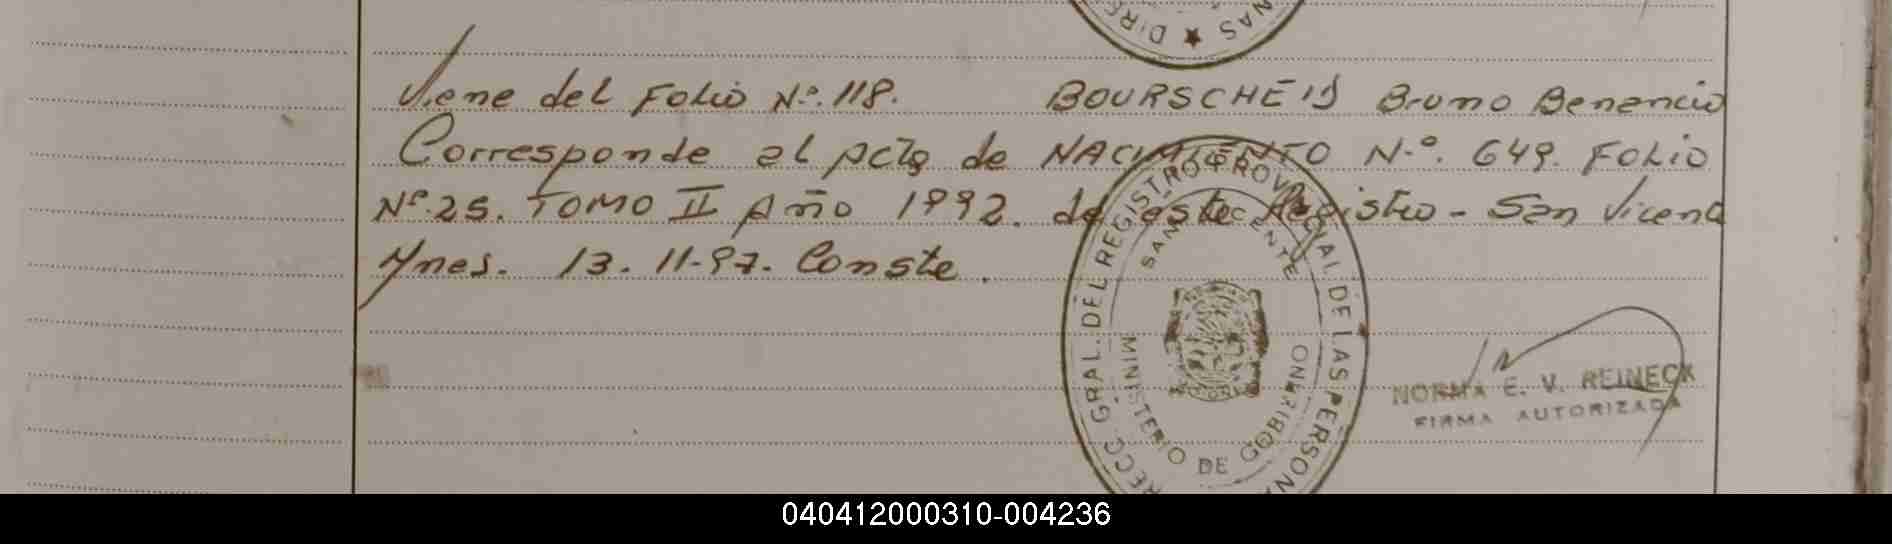 DIRE ★ NAS
Viene del Folio Nº. 118. BOURSCHEID Bruno Benencio
Corresponde al acta de NACIMIENTO N.º. 649. Folio
Nº.25. TOMO II Año 1992. de este Registro - San Vicente
Mnes. 13.11-97. Conste.
RECC. GRAL. DEL REGISTRO PROVINCIAL DE LAS PERSONA
SAN VICENTE
MINISTERIO DE GOBIERNO
NORMA E. V. REINECK
FIRMA AUTORIZADA
040412000310-004236